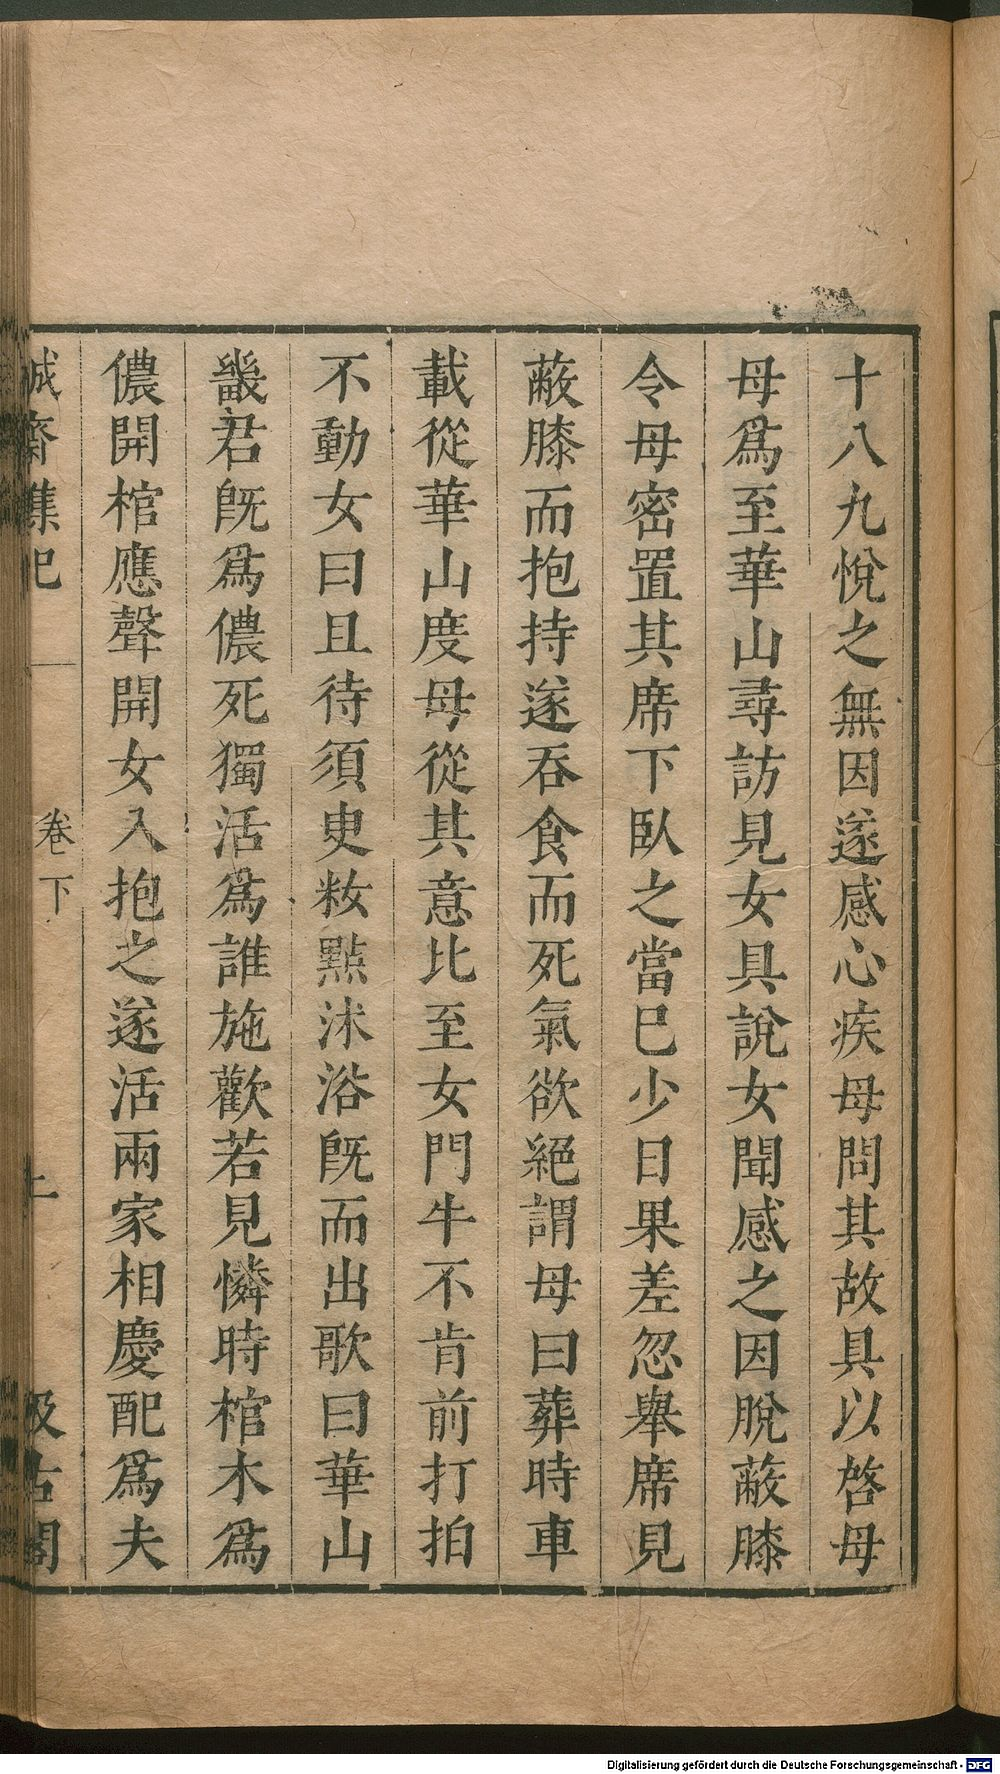 十八九悅之無因遂感心疾母問其故具以啓母
母爲至華山尋訪見女具說女聞感之因脫蔽膝
令母密置其席下臥之當巳少日果差忽舉席見
蔽膝而抱持遂吞食而死氣欲絕謂母曰葬時車
載從華山度母從其意比至女門牛不肯前打拍
不動女曰且待須臾粧點沐浴既而出歌曰華山
畿君既爲儂死獨活爲誰施歡若見憐時棺木爲
儂開棺應聲開女入抱之遂活兩家相慶配爲夫
誠齋雜記
卷下
汲古閣
Digitalisierung gefördert durch die Deutsche Forschungsgemeinschaft - DFG